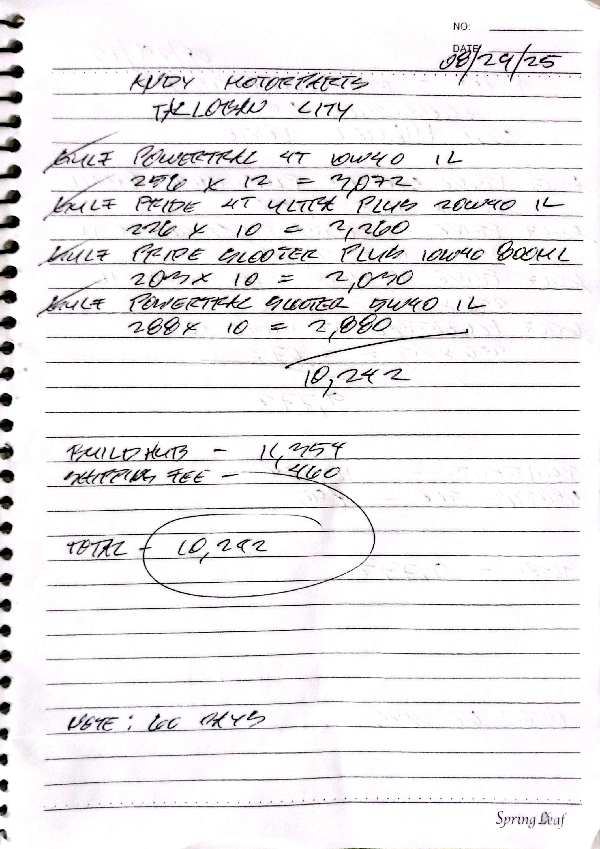 NO:
DATE 08/29/25
ANDY MOTORPARTS
TACLOBAN CITY
GULF POWERTRAC 4T 10W40 1L
256 X 12 = 3,072
GULF PRIDE 4T ULTRA PLUS 20W40 1L
226 X 10 = 2,260
GULF PRIDE SCOOTER PLUS 10W40 800ML
203 X 10 = 2,030
GULF POWERTRAC SCOOTER 5W40 1L
288 X 10 = 2,880
10,242
BUILDHUB - 11,354
SHIPPING FEE - 460
TOTAL - 10,242
NOTE: 60 DAYS
Spring Leaf